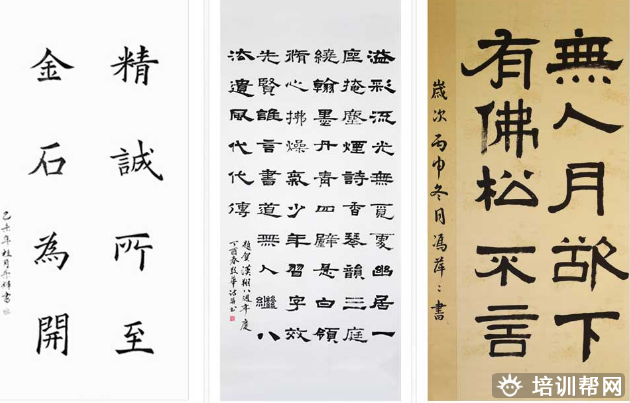 精誠所至
金石為開
溢彩流光無覓處幽居一
座掩塵煙詩香琴韻三庭
繞翰墨丹青四壁是白領
脩心拂燥氣少年習字效
先賢誰言書道無人繼八
法遺風代代傳
題賀漢翔八週年慶
無人月欲下
有佛松不言
歲次丙申冬月馮萍〻書
培训帮网